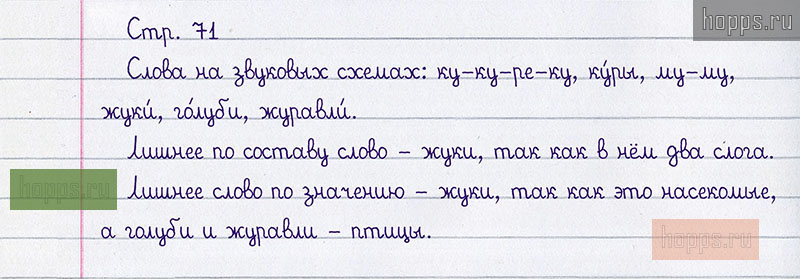 hopps.ru
Стр. 71
Слова на звуковых схемах: ку-ку-ре-ку, ку́ры, му-му,
жуки́, го́луби, журавли́.
Лишнее по составу слово – жуки, так как в нём два слога.
hopps.ru
Лишнее слово по значению – жуки, так как это насекомые,
а голуби и журавли – птицы.
hopps.ru